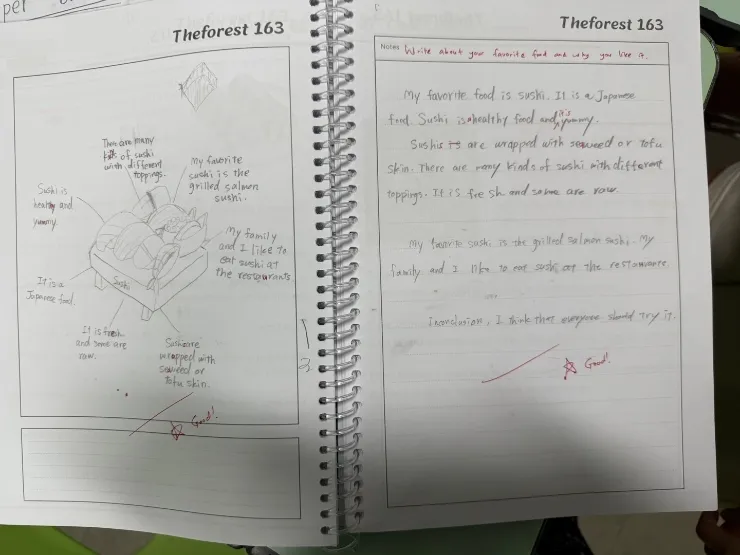 pet
Theforest 163
There are many
kinds of sushi
with different
toppings.
My favorite
sushi is the
grilled salmon
sushi.
Sushi is
healthy and
yummy.
My family
and I like to
eat sushi at
the restaurants.
It is a
Japanese food.
Sushi
It is fresh
and some are
raw.
Sushi are
wrapped with
seaweed or
tofu skin.
Good!
Theforest 163
Notes Write about your favorite food and why you like it.
My favorite food is sushi. It is a Japanese
food. Sushi is healthy food and it's yummy.
Sushis are wrapped with seaweed or tofu
skin. There are many kinds of sushi with different
toppings. It is fre sh and some are raw.
My favorite sushi is the grilled salmon sushi. My
family and I like to eat sushi at the restaurante.
Inconclusion, I think that everyone should try it.
Good!